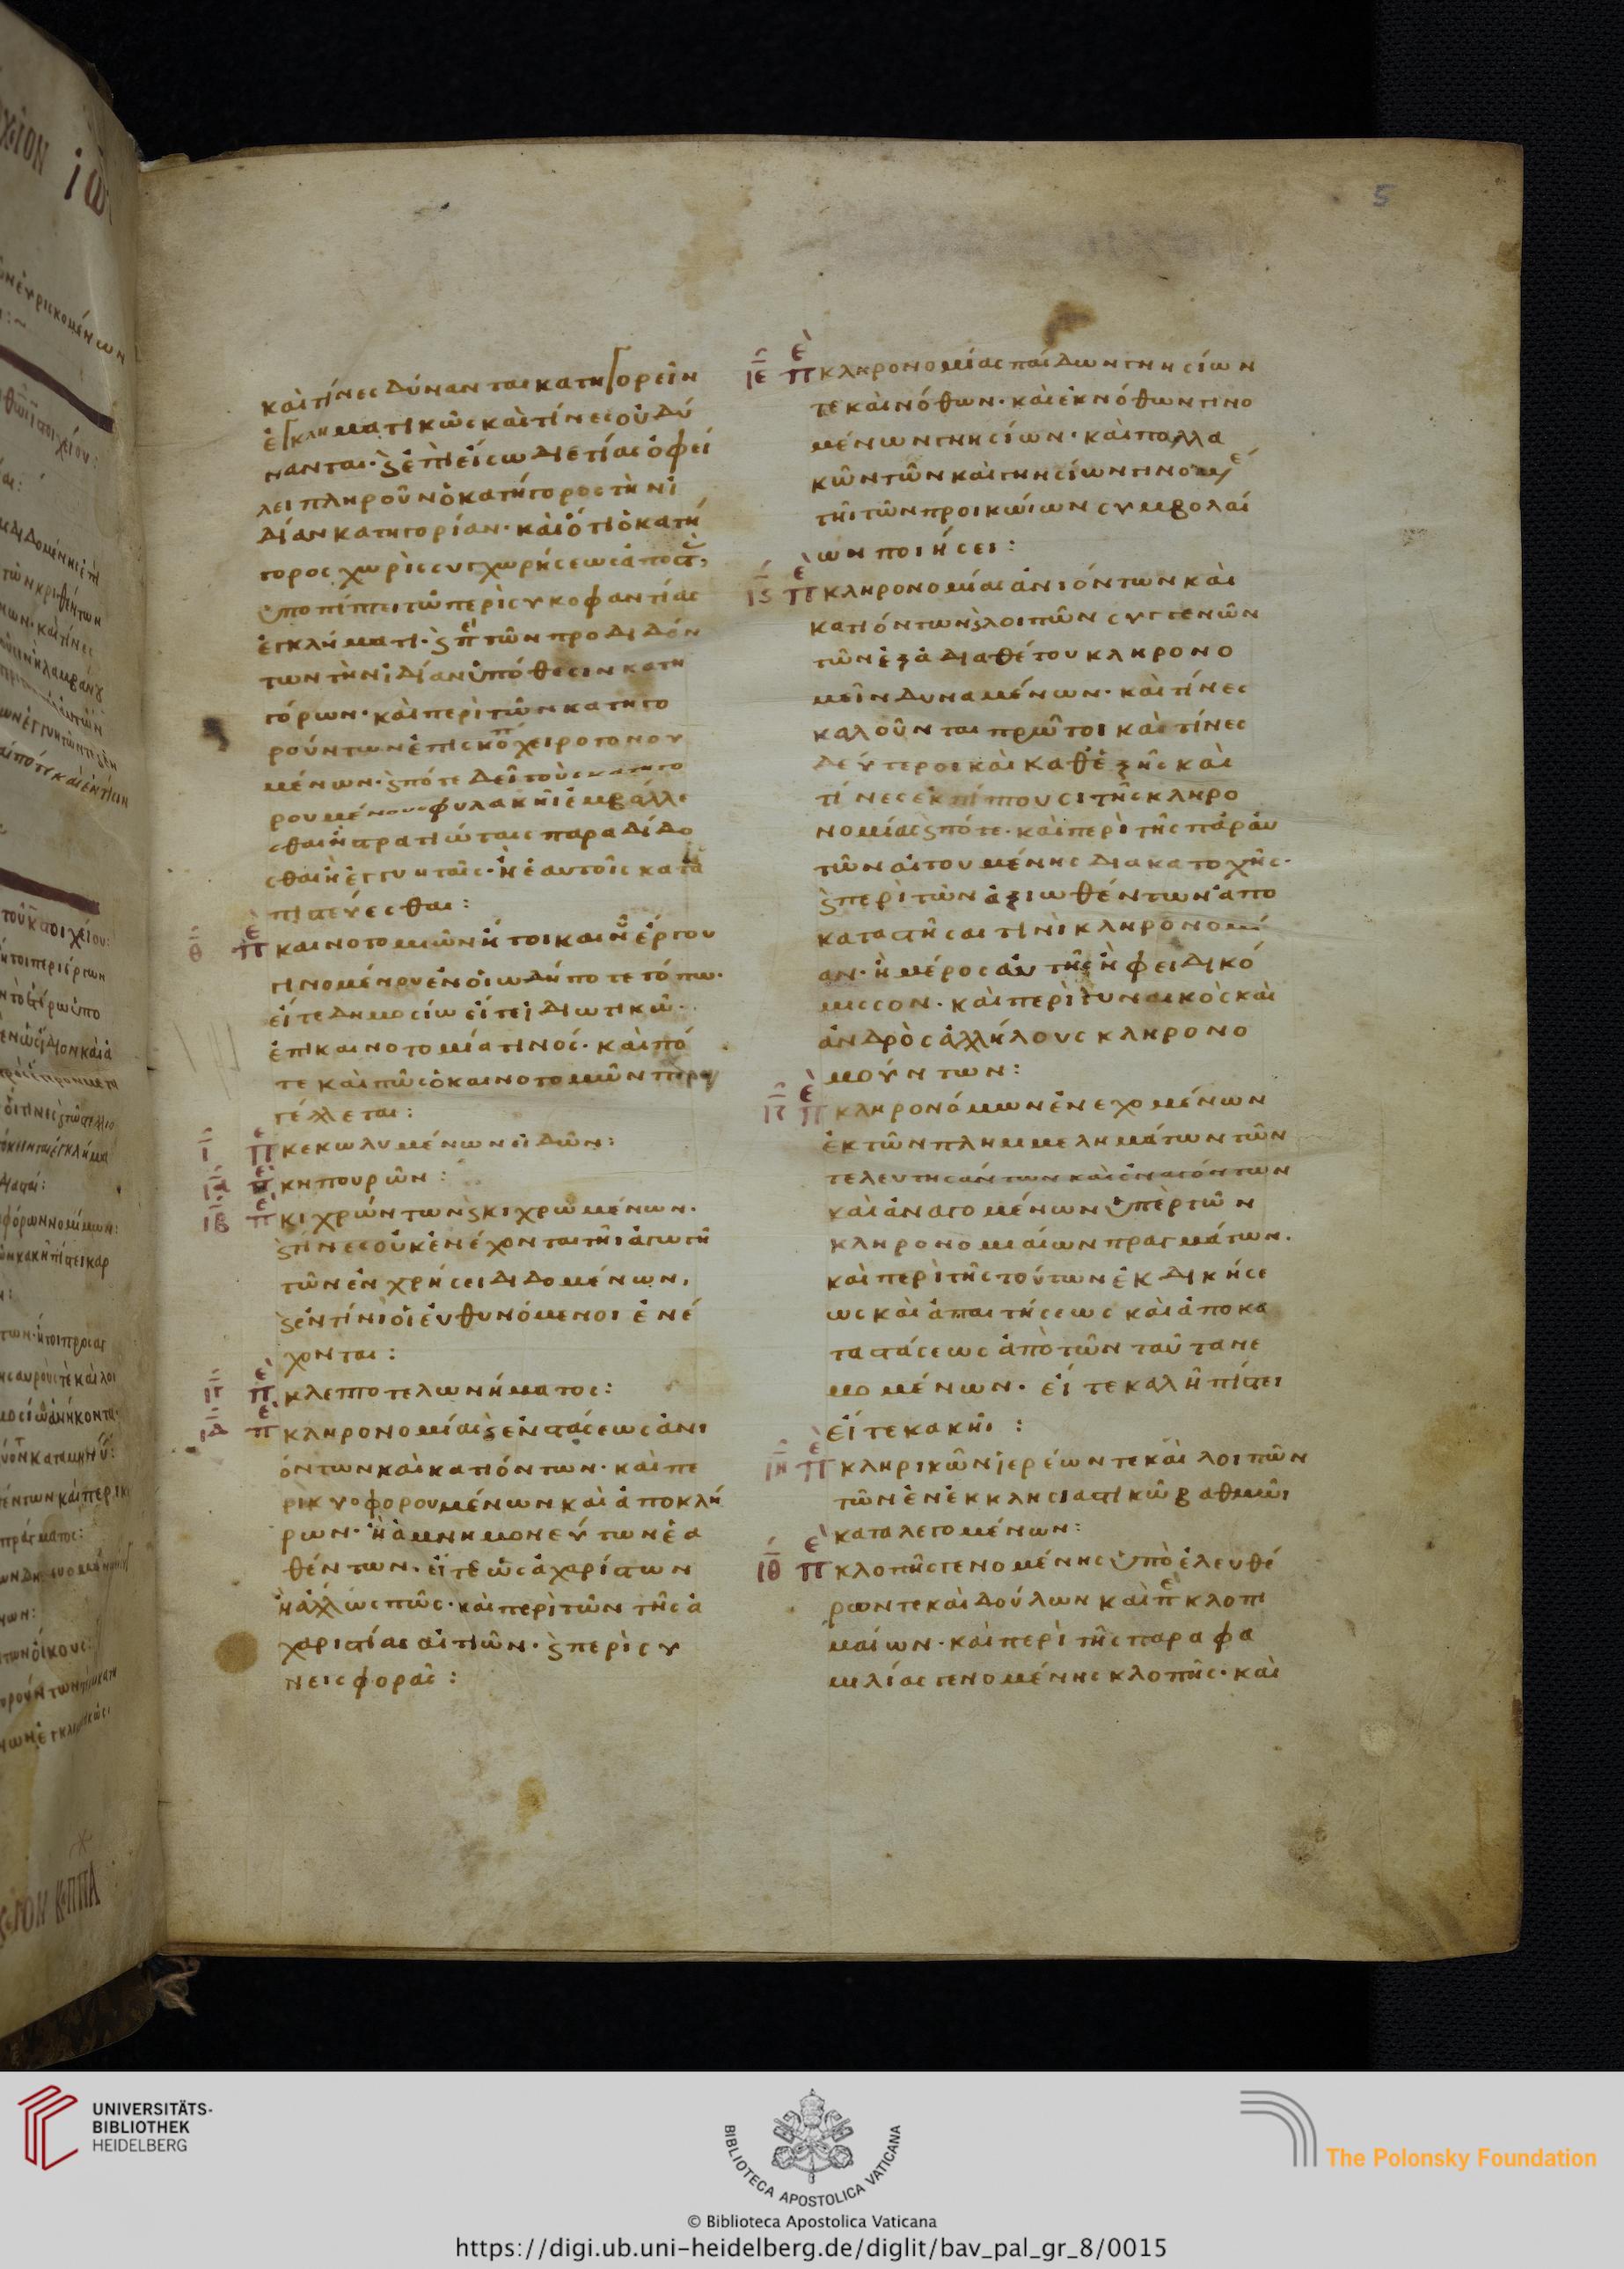 5
καὶ τίνες δύνανται κατηγορεῖν
ἐγκληματικῶς καὶ τίνες οὐ δύ
νανται· ϛ ἐπὶ εἴσω διετίας ὀφεί
λει πληροῦν ὁ κατήγορος τὴν ἰ
δίαν κατηγορίαν· καὶ ὅτι ὁ κατή
γορος χωρὶς συγχωρήσεως ἀποστ
ὑποπίπτει τῷ περὶ συκοφαντίας
ἐγκλήματι· ϛ πε τῶν προδιδόν
των τὴν ἰδίαν ὑπόθεσιν κατη
γόρων· καὶ περὶ τῶν κατηγο
ρούντων ἐπισκόπ χειροτονου
μένων· ϛ πότε δεῖ τοὺς κατηγο
ρουμένους φυλακῆι ἐμβάλλε
σθαι ἢ στρατιώταις παραδίδο
σθαι ἢ ἐγγυηταῖς· ἢ ἑαυτοῖς κατα
πιστεύεσθαι:
θ πε καινοτομιῶν ἤτοι καινοῦ ἔργου
γινομένου ἐν οἱωδήποτε τόπω·
εἴτε δημοσίω εἴτε ἰδιωτικῶ·
ἐπὶ καινοτομία τινός· καὶ πό
τε καὶ πῶς ὁ καινοτομῶν παραγ
γέλλεται:
ι πε κεκωλυμένων εἰδῶν:
ια πε κηπουρῶν:
ιβ πε κιχρώντων ϛ κιχρωμένων·
ϛ τίνες οὐκ ἐνέχονται τῆι ἀγωγῆ
τῶν ἐν χρήσει διδομένων,
ϛ ἐν τίνι οἱ εὐθυνόμενοι ἐνέ
χονται:
ιγ πε κλεπτοτελωνήματος:
ιδ πε κληρονομίας ϛ ἐνστάσεως ἀνι
όντων καὶ κατιόντων· καὶ πε
ρὶ κυοφορουμένων καὶ ἀποκλή
ρων· ἢ ἀμνημονεύτων ἐα
θέντων. εἴτε ὡς ἀχαρίστων
ἢ ἄλλως πῶς· καὶ περὶ τῶν τῆς ἀ
χαριστίας αἰτιῶν· ϛ περὶ συ
νεισφορᾶς:
ιε πε κληρονομίας παίδων γνησίων
τε καὶ νόθων· καὶ ἐκ νόθων γινο
μένων γνησίων· καὶ παλλα
κῶν τῶν καὶ γνησίων γινομέ
τῆι τῶν προικώιων συμβολαί
ων ποιήσει:
ιϛ πε κληρονομίας ἀνιόντων καὶ
κατιόντων ϛ λοιπῶν συγγενῶν
τῶν ἐξ ἀδιαθέτου κληρονο
μεῖν δυναμένων· καὶ τίνες
καλοῦνται πρῶτοι καὶ τίνες
δεύτεροι καὶ καθεξῆς καὶ
τίνες ἐκπίπτουσι τῆς κληρο
νομίας ϛ πότε· καὶ περὶ τῆς παρ' αυ
τῶν αἰτουμένης διακατοχῆς·
ϛ περὶ τῶν ἀξιωθέντων ἀπο
καταστῆσαι τινὶ κληρονομί
αν· ἢ μέρος αὐτῆς ἢ φειδικό
μισσον· καὶ περὶ γυναικὸς καὶ
ἀνδρὸς ἀλλήλους κληρονο
μούντων:
ιζ πε κληρονόμων ἐνεχομένων
ἐκ τῶν πλημμελημάτων τῶν
τελευτησάντων καὶ ἐναγόντων
καὶ ἀναγομένων ὑπὲρ τῶν
κληρονομιαίων πραγμάτων.
καὶ περὶ τῆς τούτων ἐκδικήσε
ως καὶ ἀπαιτήσεως καὶ ἀποκα
ταστάσεως ἀπὸ τῶν ταῦτα νε
μομένων· εἴτε καλῆ πίστει
εἴτε κακῆι:
ιη πε κληρικῶν ἱερέων τε καὶ λοιπῶν
τῶν ἐν ἐκκλησιαστικῶ βαθμῶι
καταλεγομένων:
ιθ πε κλοπῆς γενομένης ὑπὸ ἐλευθέ
ρων τε καὶ δούλων καὶ πε κλοπι
μαίων· καὶ περὶ τῆς παρὰ φα
μιλίας γενομένης κλοπῆς· καὶ
UNIVERSITÄTS-
BIBLIOTHEK
HEIDELBERG
BIBLIOTECA APOSTOLICA VATICANA
The Polonsky Foundation
© Biblioteca Apostolica Vaticana
https://digi.ub.uni-heidelberg.de/diglit/bav_pal_gr_8/0015